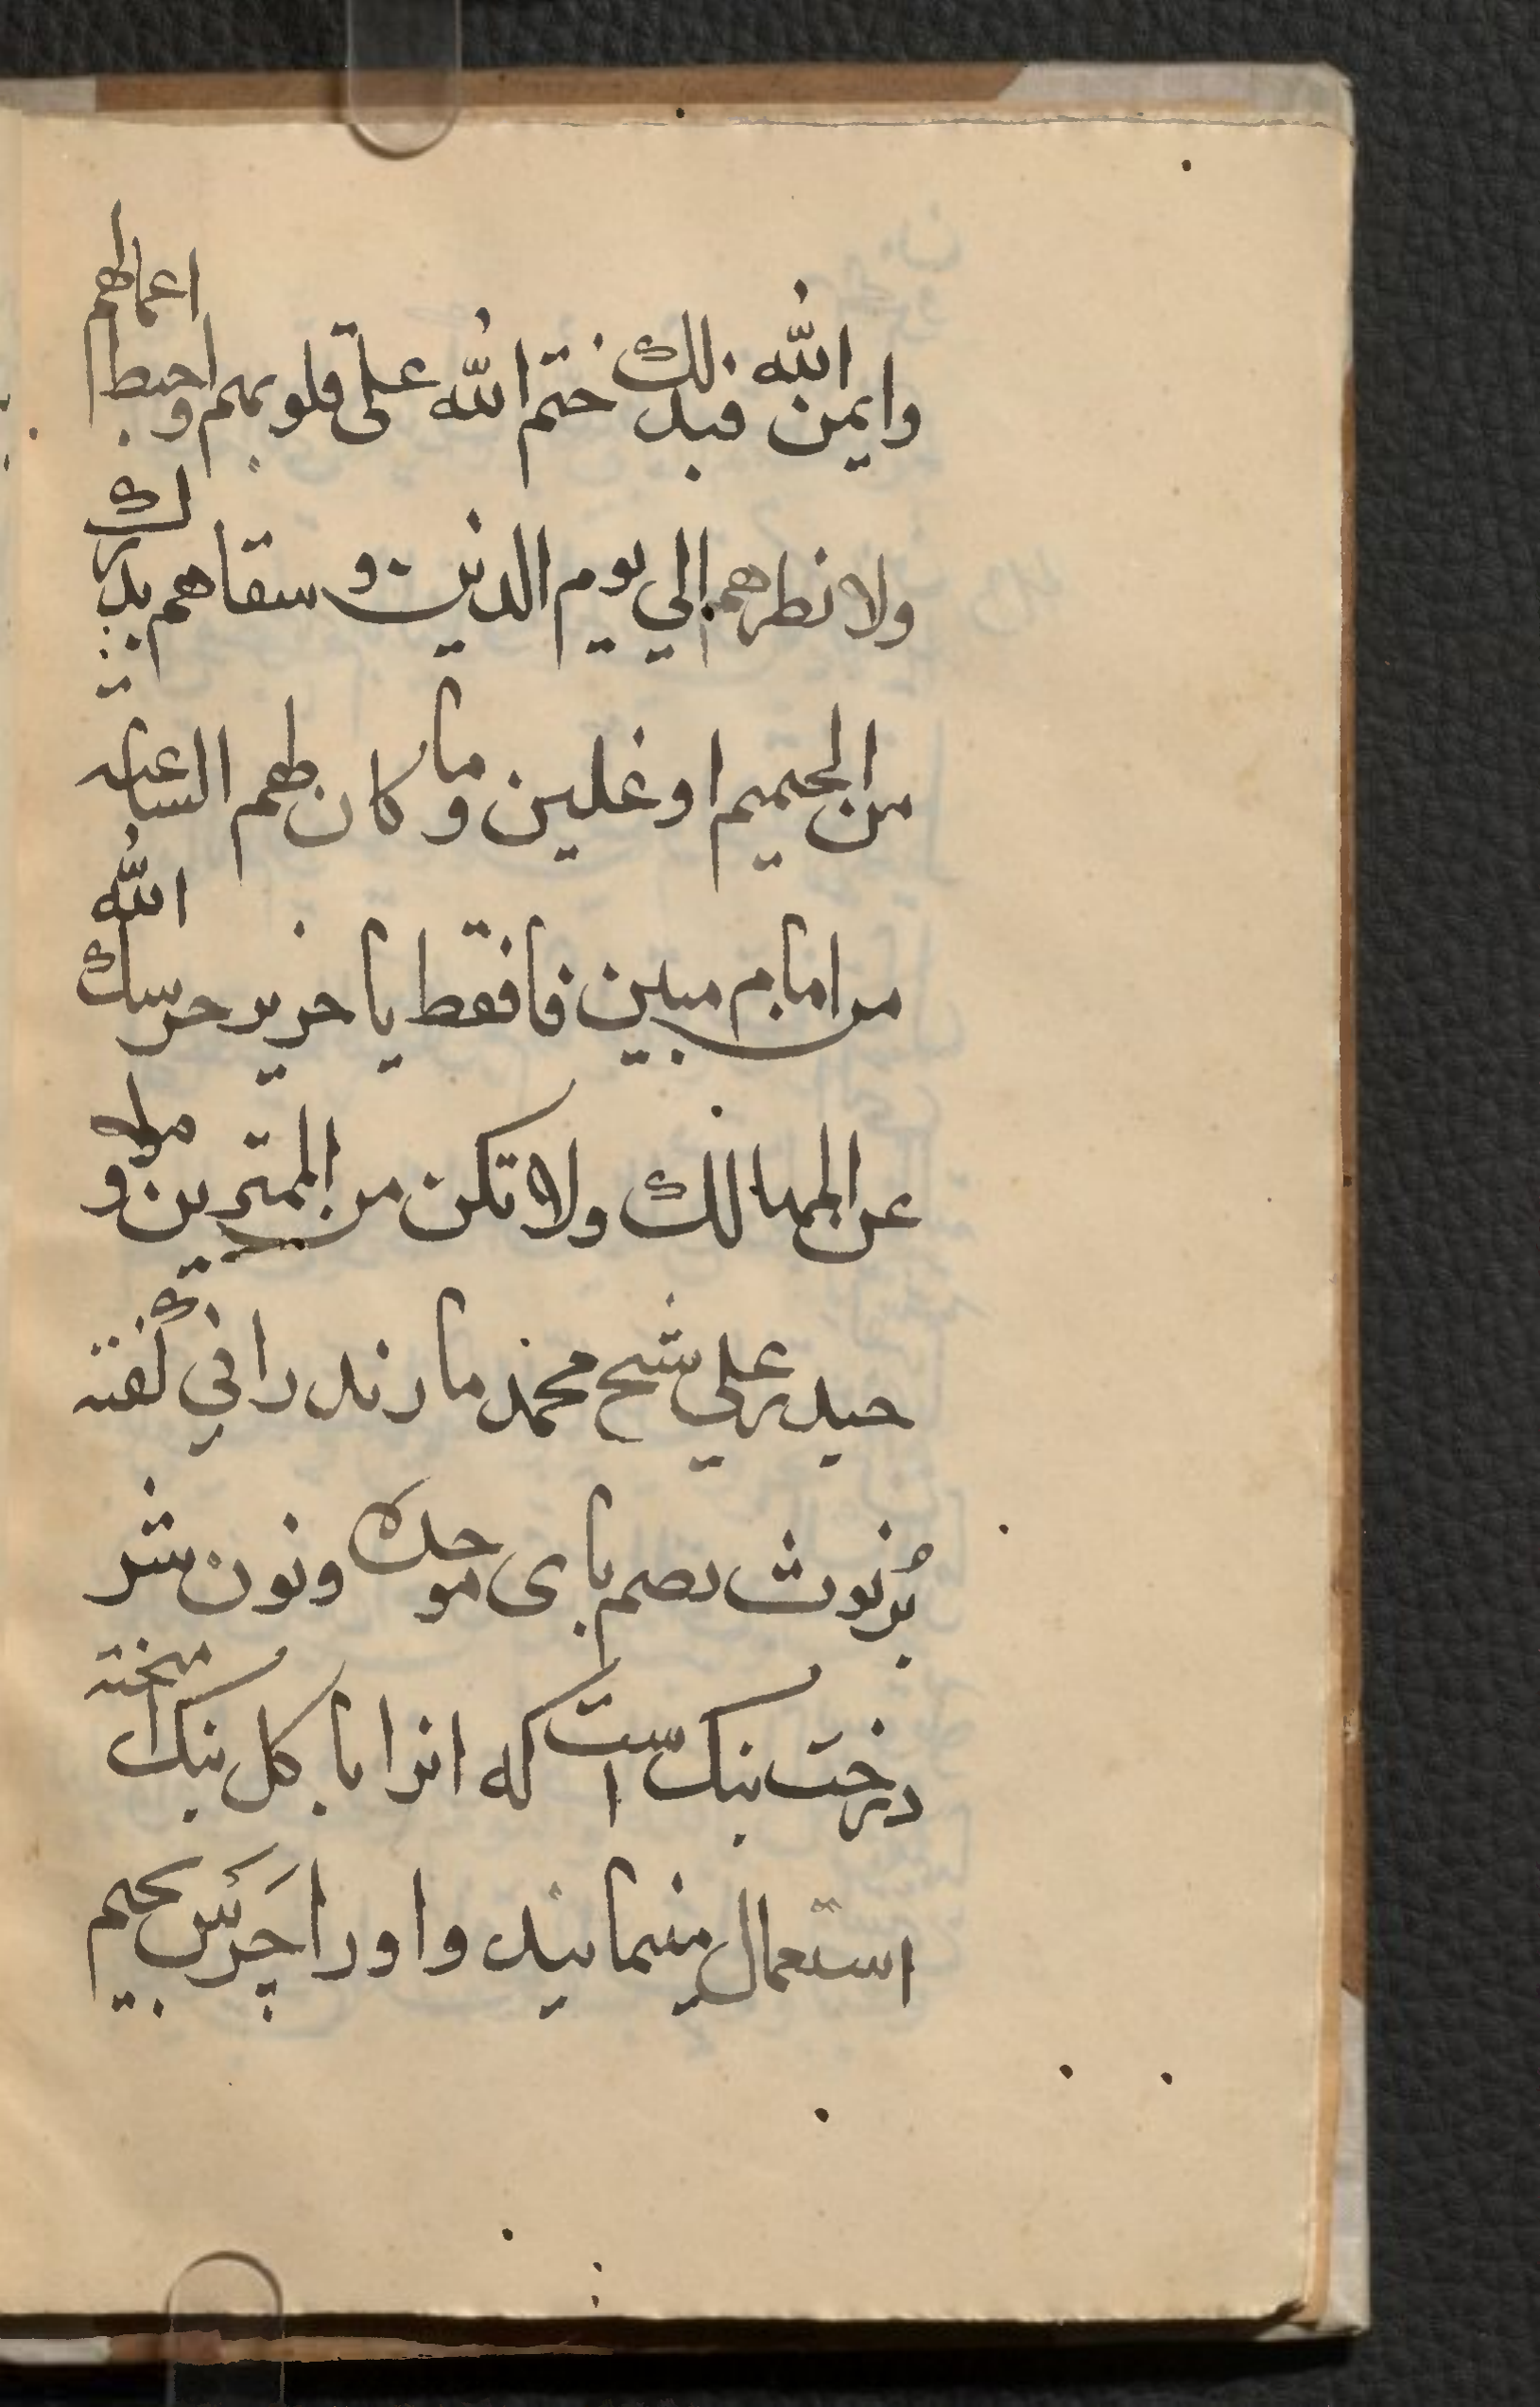 وايمن الله فبذلك ختم الله على قلوبهم واحبط اعمالهم
ولا نطرهم الي يوم الدين و سقاهم بذلك
من الحميم او غلين وما كان لهم الساعة
من امام مبين فافقط يا خرير حرسك الله
عن المهالك ولا تكن من الممترين و مولا
حيدر علي شيخ محمد مازندراني گفته
بُرنوث بضم باى موحده ونون شر
درخت بنک است که انرا با کل بنک پخته
استعمال مينمايند واورا چَرَس بجيم